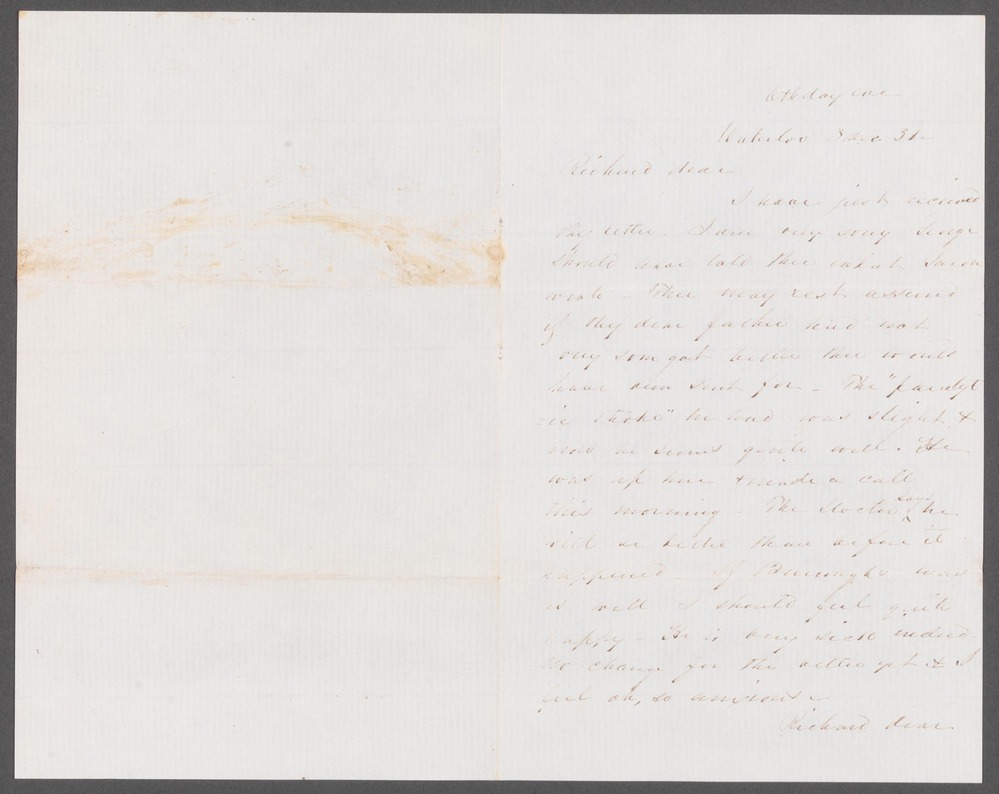 6th day eve
Waterloo 3 mo. 31
Richard dear
I have just received
thy letter. I am very sorry George
should have told thee what Sarah
wrote - Thee may rest assured
if thy dear father had not
very soon got better thee would
have been sent for - The "paralyt
-ic stroke" he had was slight &
now he seems quite well. He
was up here & made a call
this morning - The Doctor says he
will be better than before it
happened - If Burroughs was
as well I should feel quite
happy - He is very sick indeed
No change for the better yet & I
feel oh, so anxious -
Richard dear